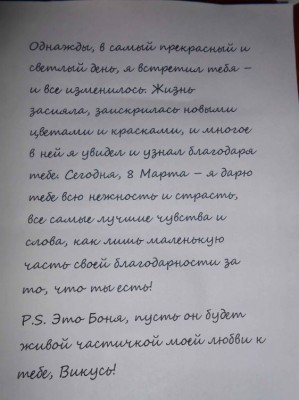 Однажды, в самый прекрасный и
светлый день, я встретил тебя –
и все изменилось. Жизнь
засияла, заискрилась новыми
цветами и красками, и многое
в ней я увидел и узнал благодаря
тебе. Сегодня, 8 Марта – я дарю
тебе всю нежность и страсть,
все самые лучшие чувства и
слова, как лишь маленькую
часть своей благодарности за
то, что ты есть!
P.S. Это Боня, пусть он будет
живой частичкой моей любви к
тебе, Викусь!